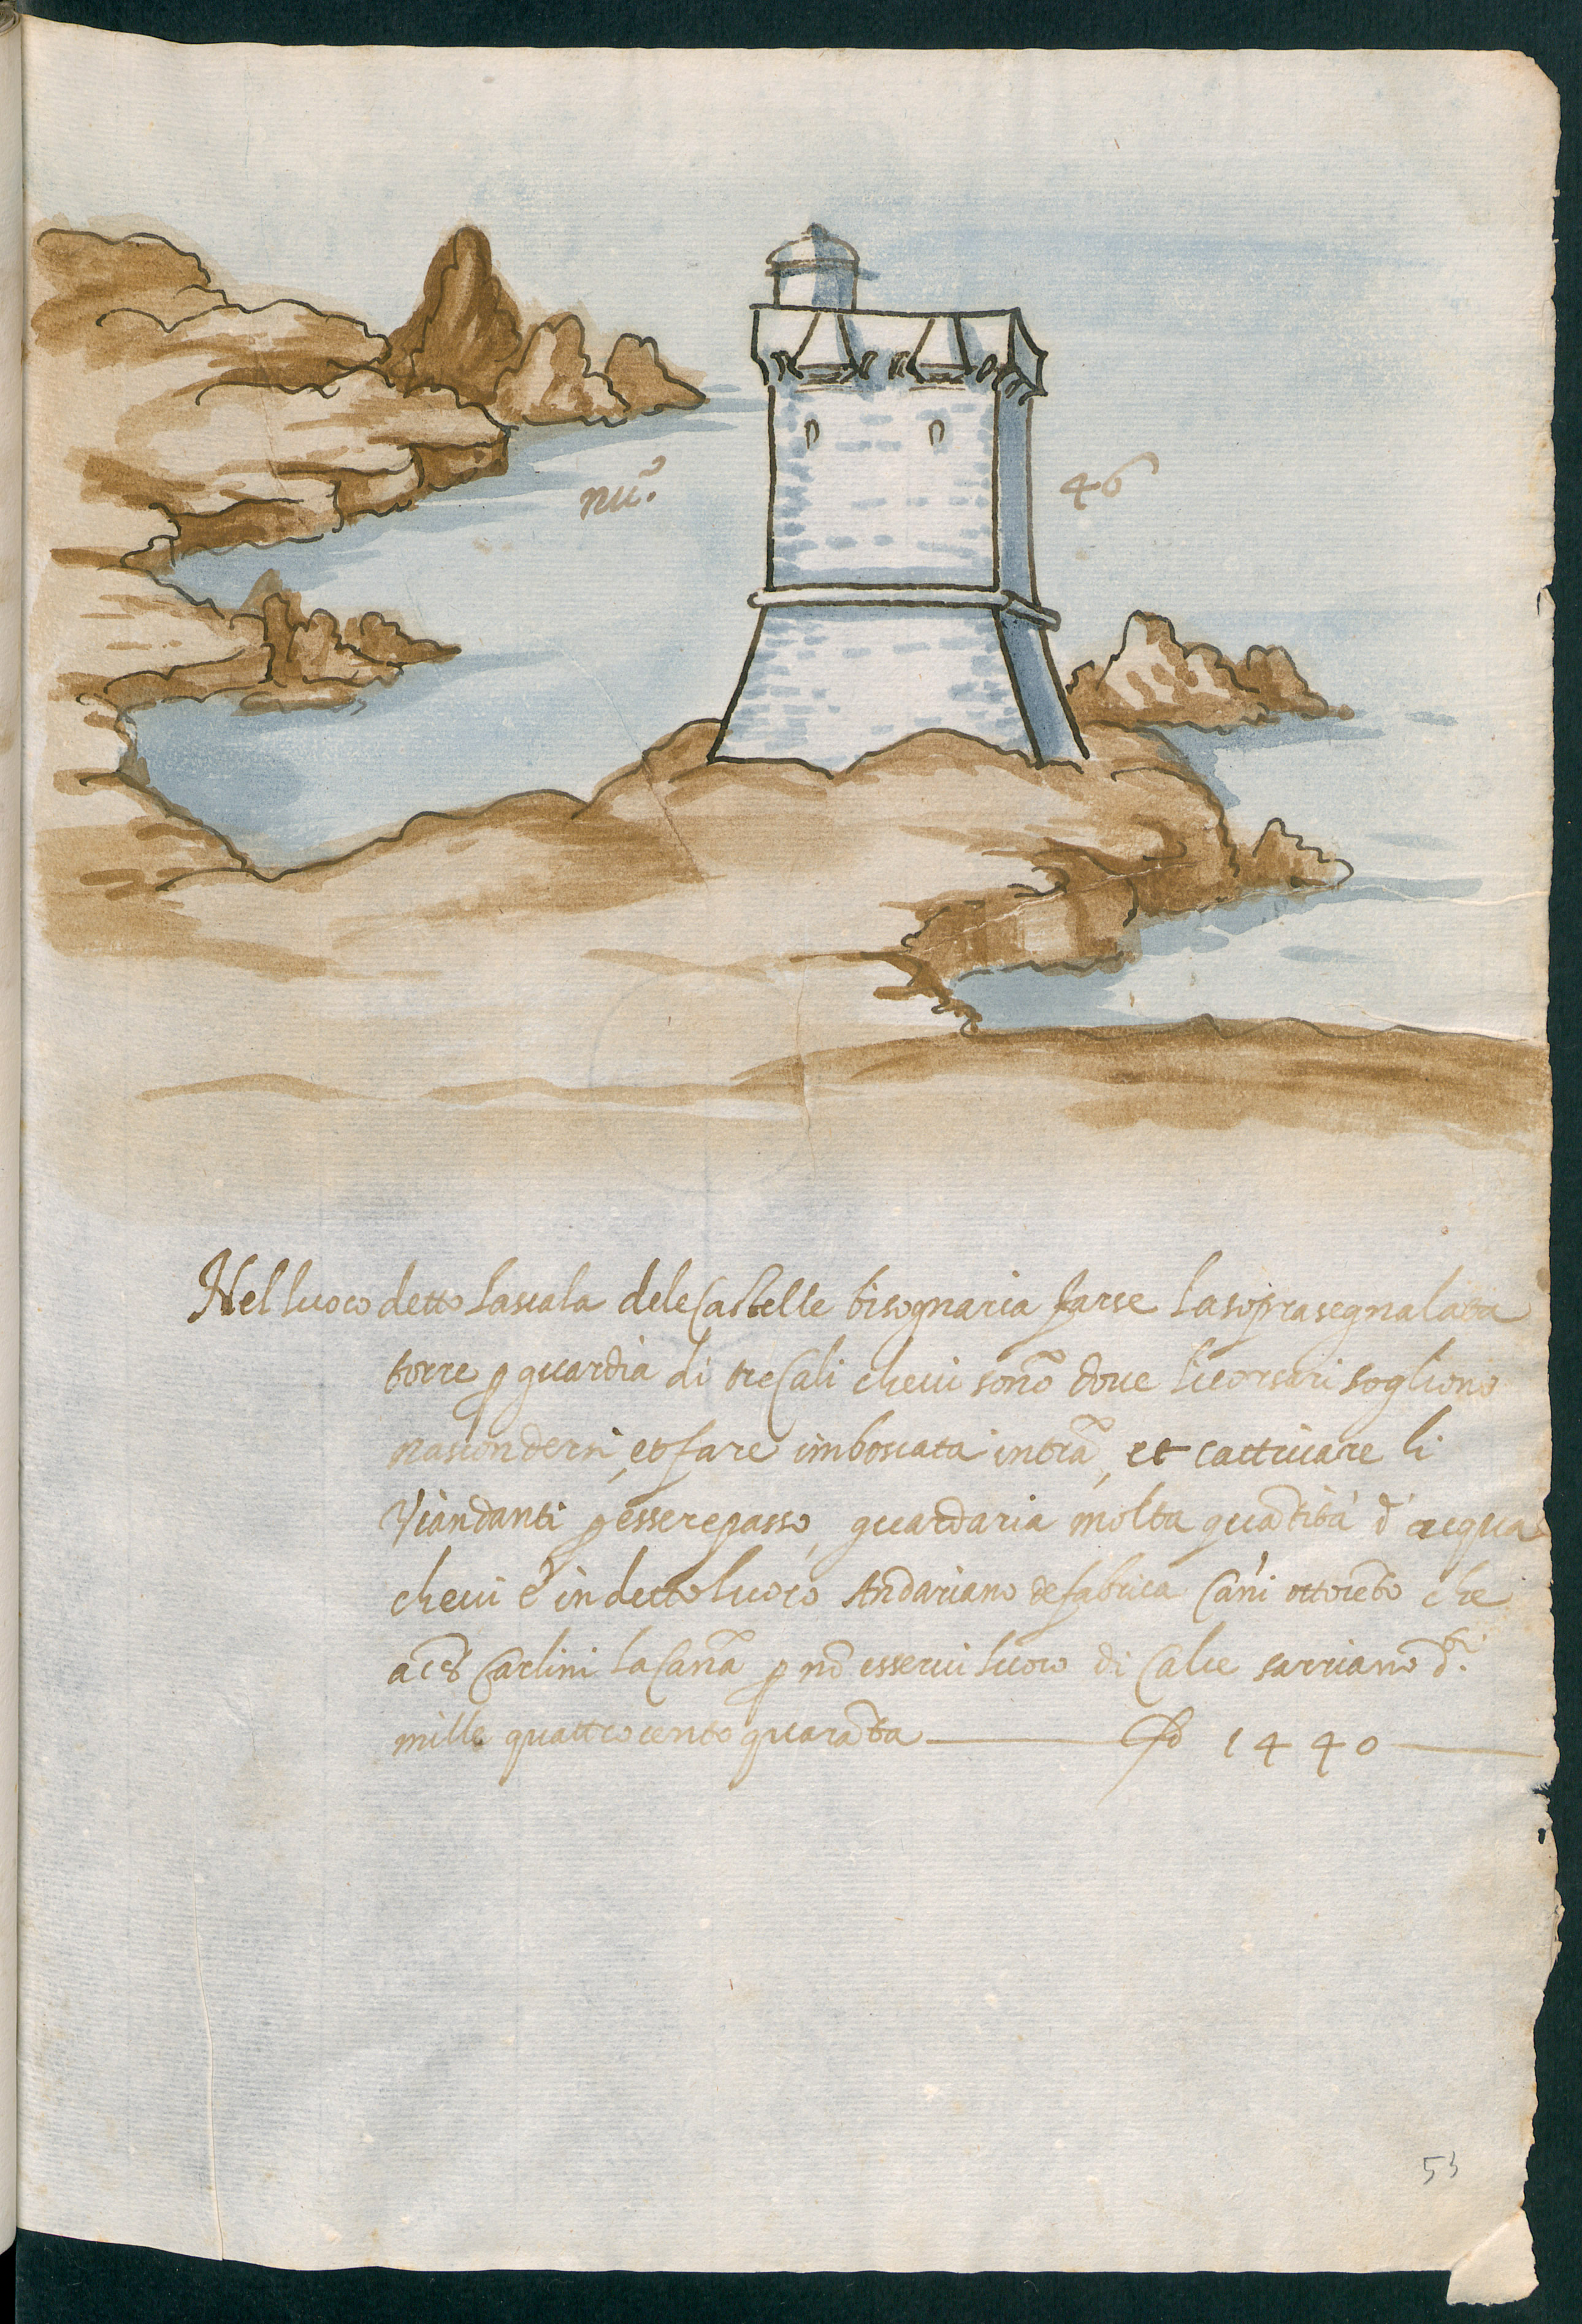 nu.º 46
Nel luoco detto La scala dele Castelle bisognaria farse La soprasegnalata
torre p guardia di tre Cali che vi sono dove li corsari sogliono
nascondersi, et fare imboscata in trã, et cattivare li
Viandanti p esser e passo, guardaria molta quãtità d'acqua
che vi è in detto luoco Andariano de fabrica Cãni ottocẽto che
Carlini La Canã p nõ esservi luoco di Calce sarriano d.ti
mille quattrocento quarãta 1440
53